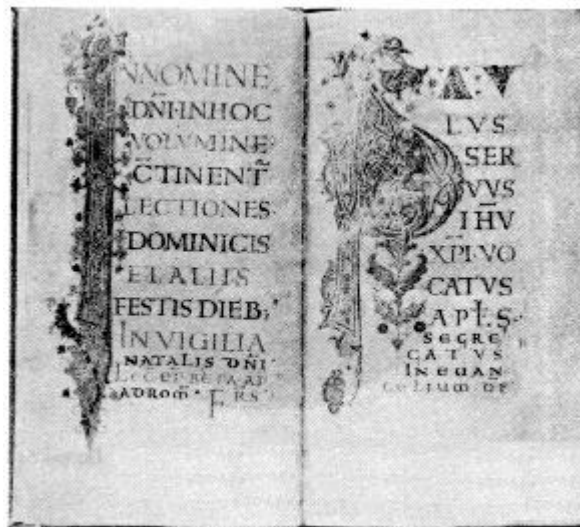 INNOMINE
DN̄I·INHOC
VOLVMINE·
C̄TINENT̄
LECTIONES
DOMINICIS
ET ALIIS
FESTIS DIEB;
IN VIGILIA
NATALIS DN̄I
AD ROM̄
PAV
LVS
SER
VVS
IH̄V
XP̄I·VO
CATVS
APLS·
SEGRE
CATVS
IN EUAN
GELIUM DE